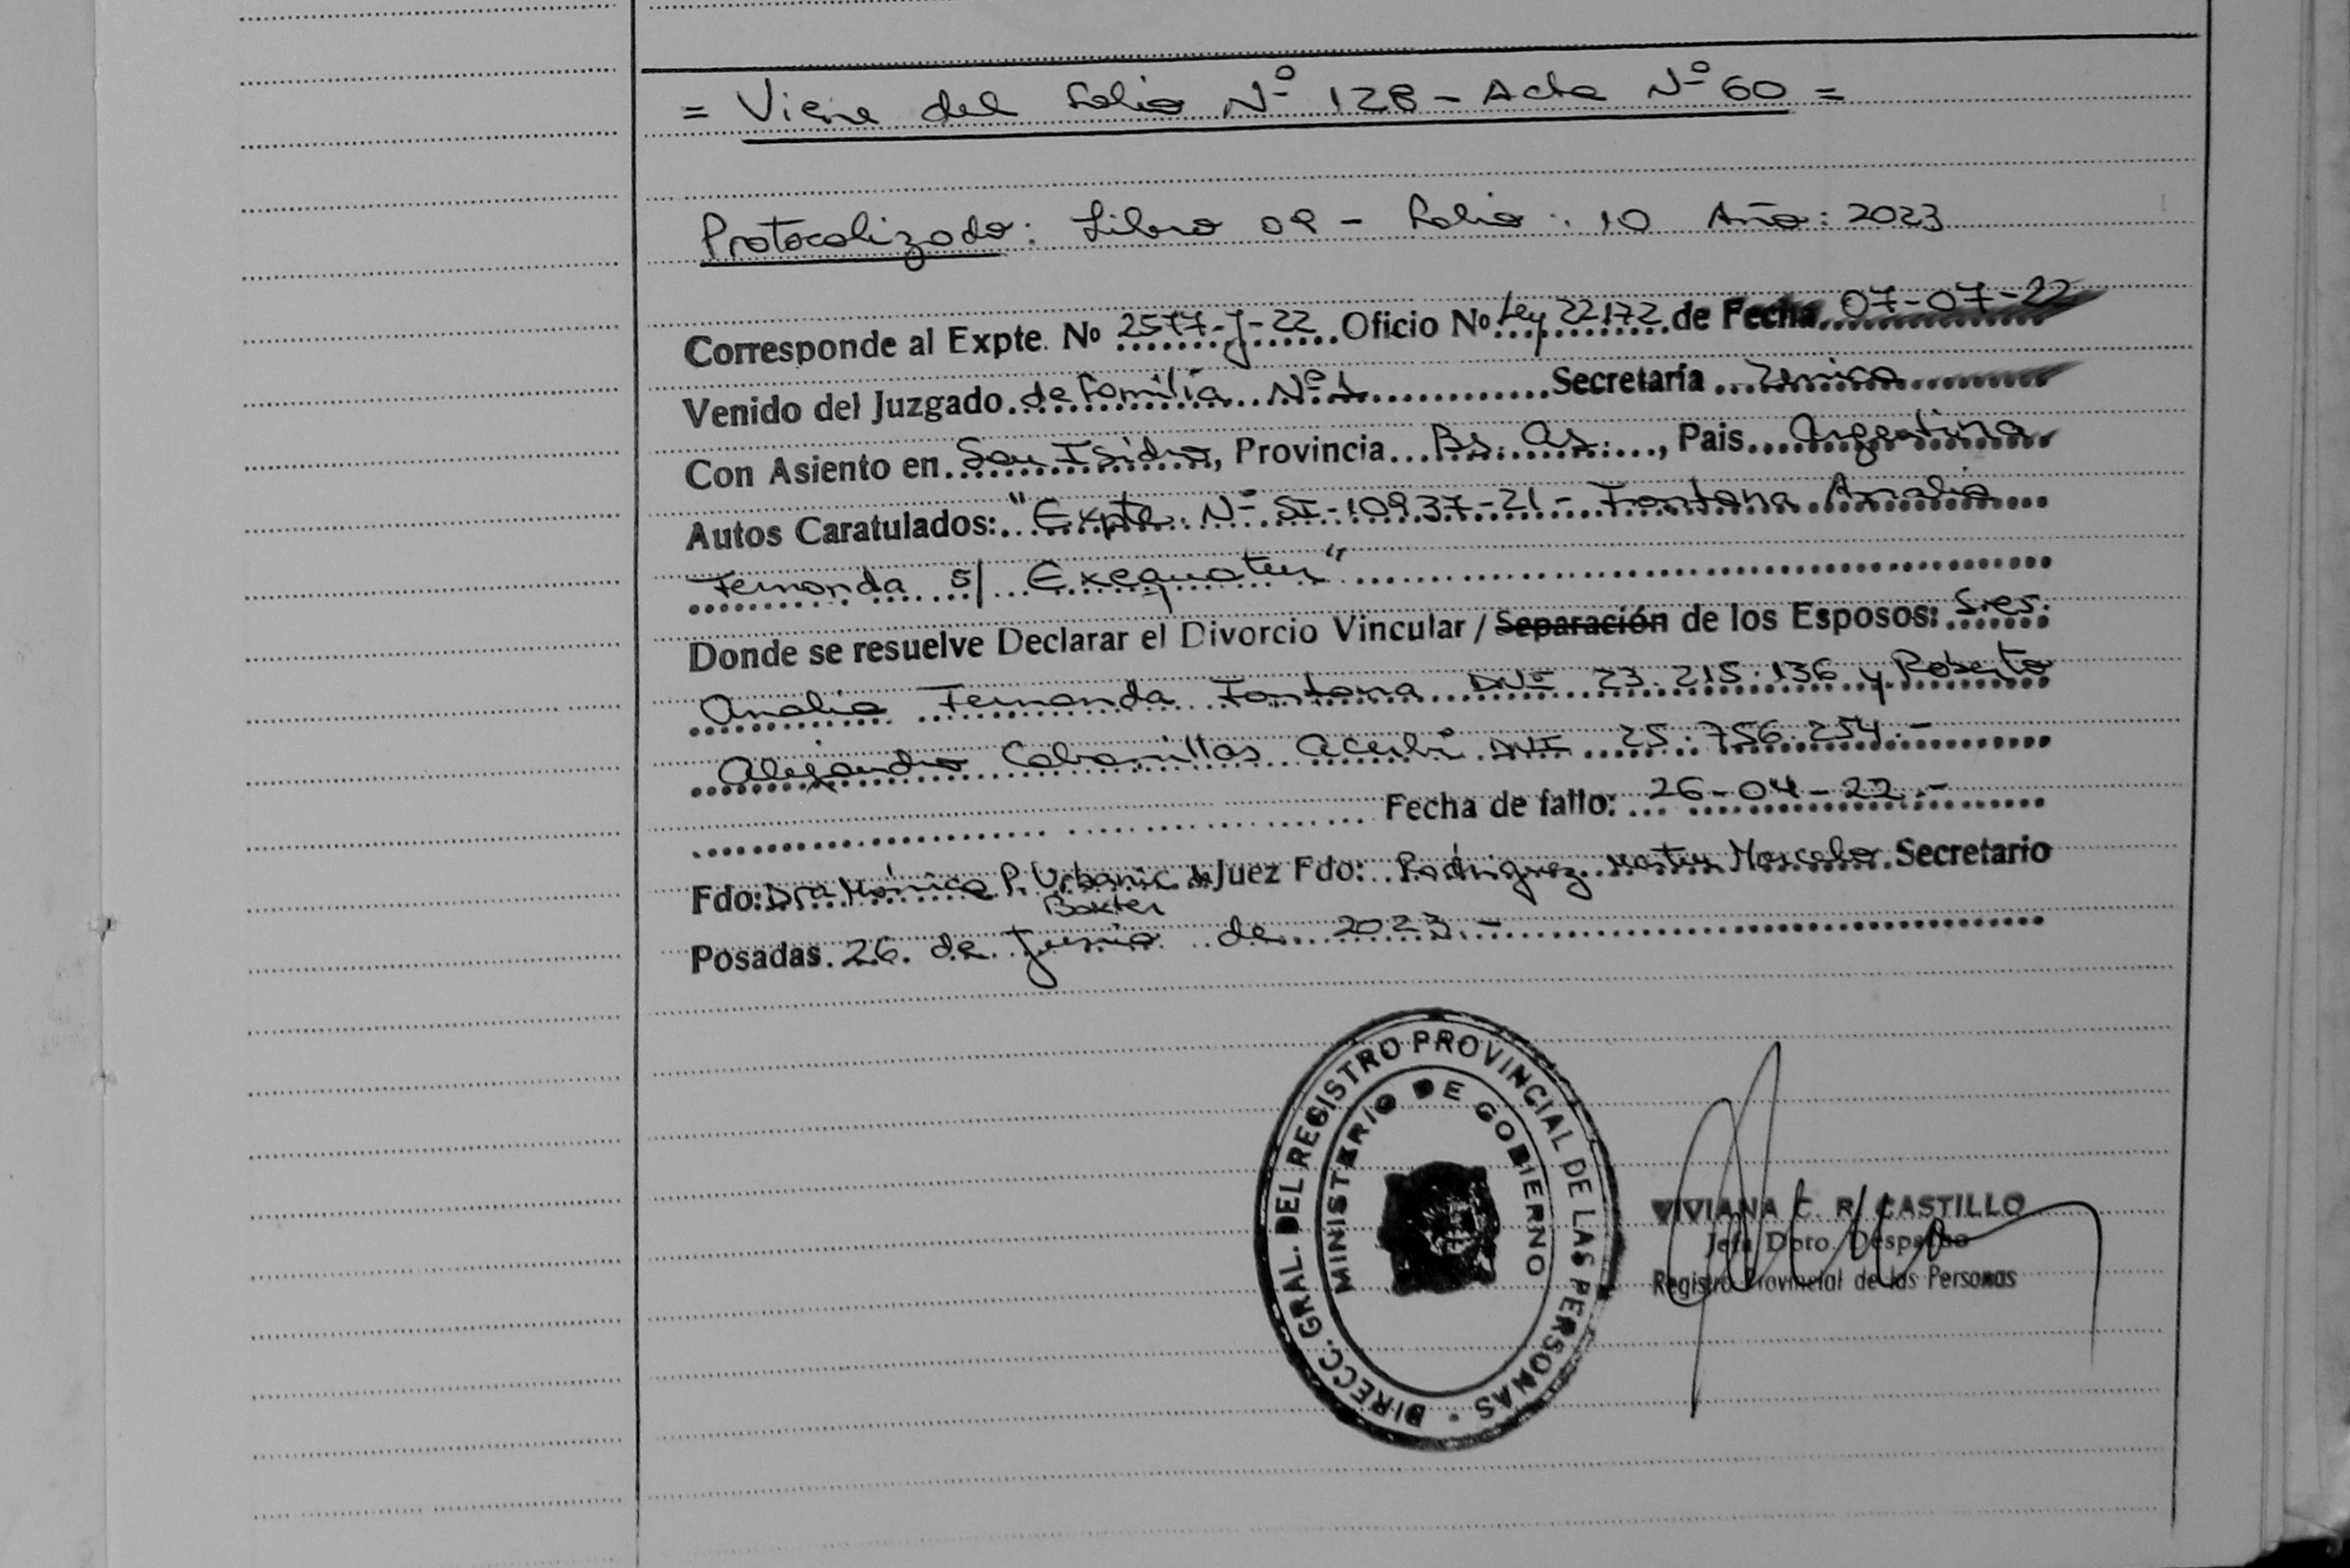 = Viene del Folio Nº 128 - Acta Nº 60 =
Protocolizado: Libro 09 - Folio: 10 Año: 2023
Corresponde al Expte. Nº 2577-J-22 Oficio Nº Ley 22172 de Fecha 07-07-22
Venido del Juzgado de Familia Nº 1 Secretaría Unica
Con Asiento en San Isidro, Provincia Bs. As., Pais Argentina
Autos Caratulados: "Expte. Nº SI-10937-21- Fontana Analia
Fernanda s/ Exequatur"
Donde se resuelve Declarar el Divorcio Vincular / Separación de los Esposos: Sres.
Analia Fernanda Fontana DNI 23.215.136 y Roberto
Alejandro Cabanillas Acerbi DNI 25.756.254.-
Fecha de fallo: 26-04-22.-
Fdo: Dra Mónica P. Urbancic de Juez Fdo: Rodriguez Martin Marcelo Secretario
Baxter
Posadas. 26 de Junio de 2023.-
DIRECC. GRAL. DEL REGISTRO PROVINCIAL DE LAS PERSONAS
MINISTERIO DE GOBIERNO
VIVIANA C. R. CASTILLO
Jefa Dpto. Despacho
Registro Provincial de las Personas